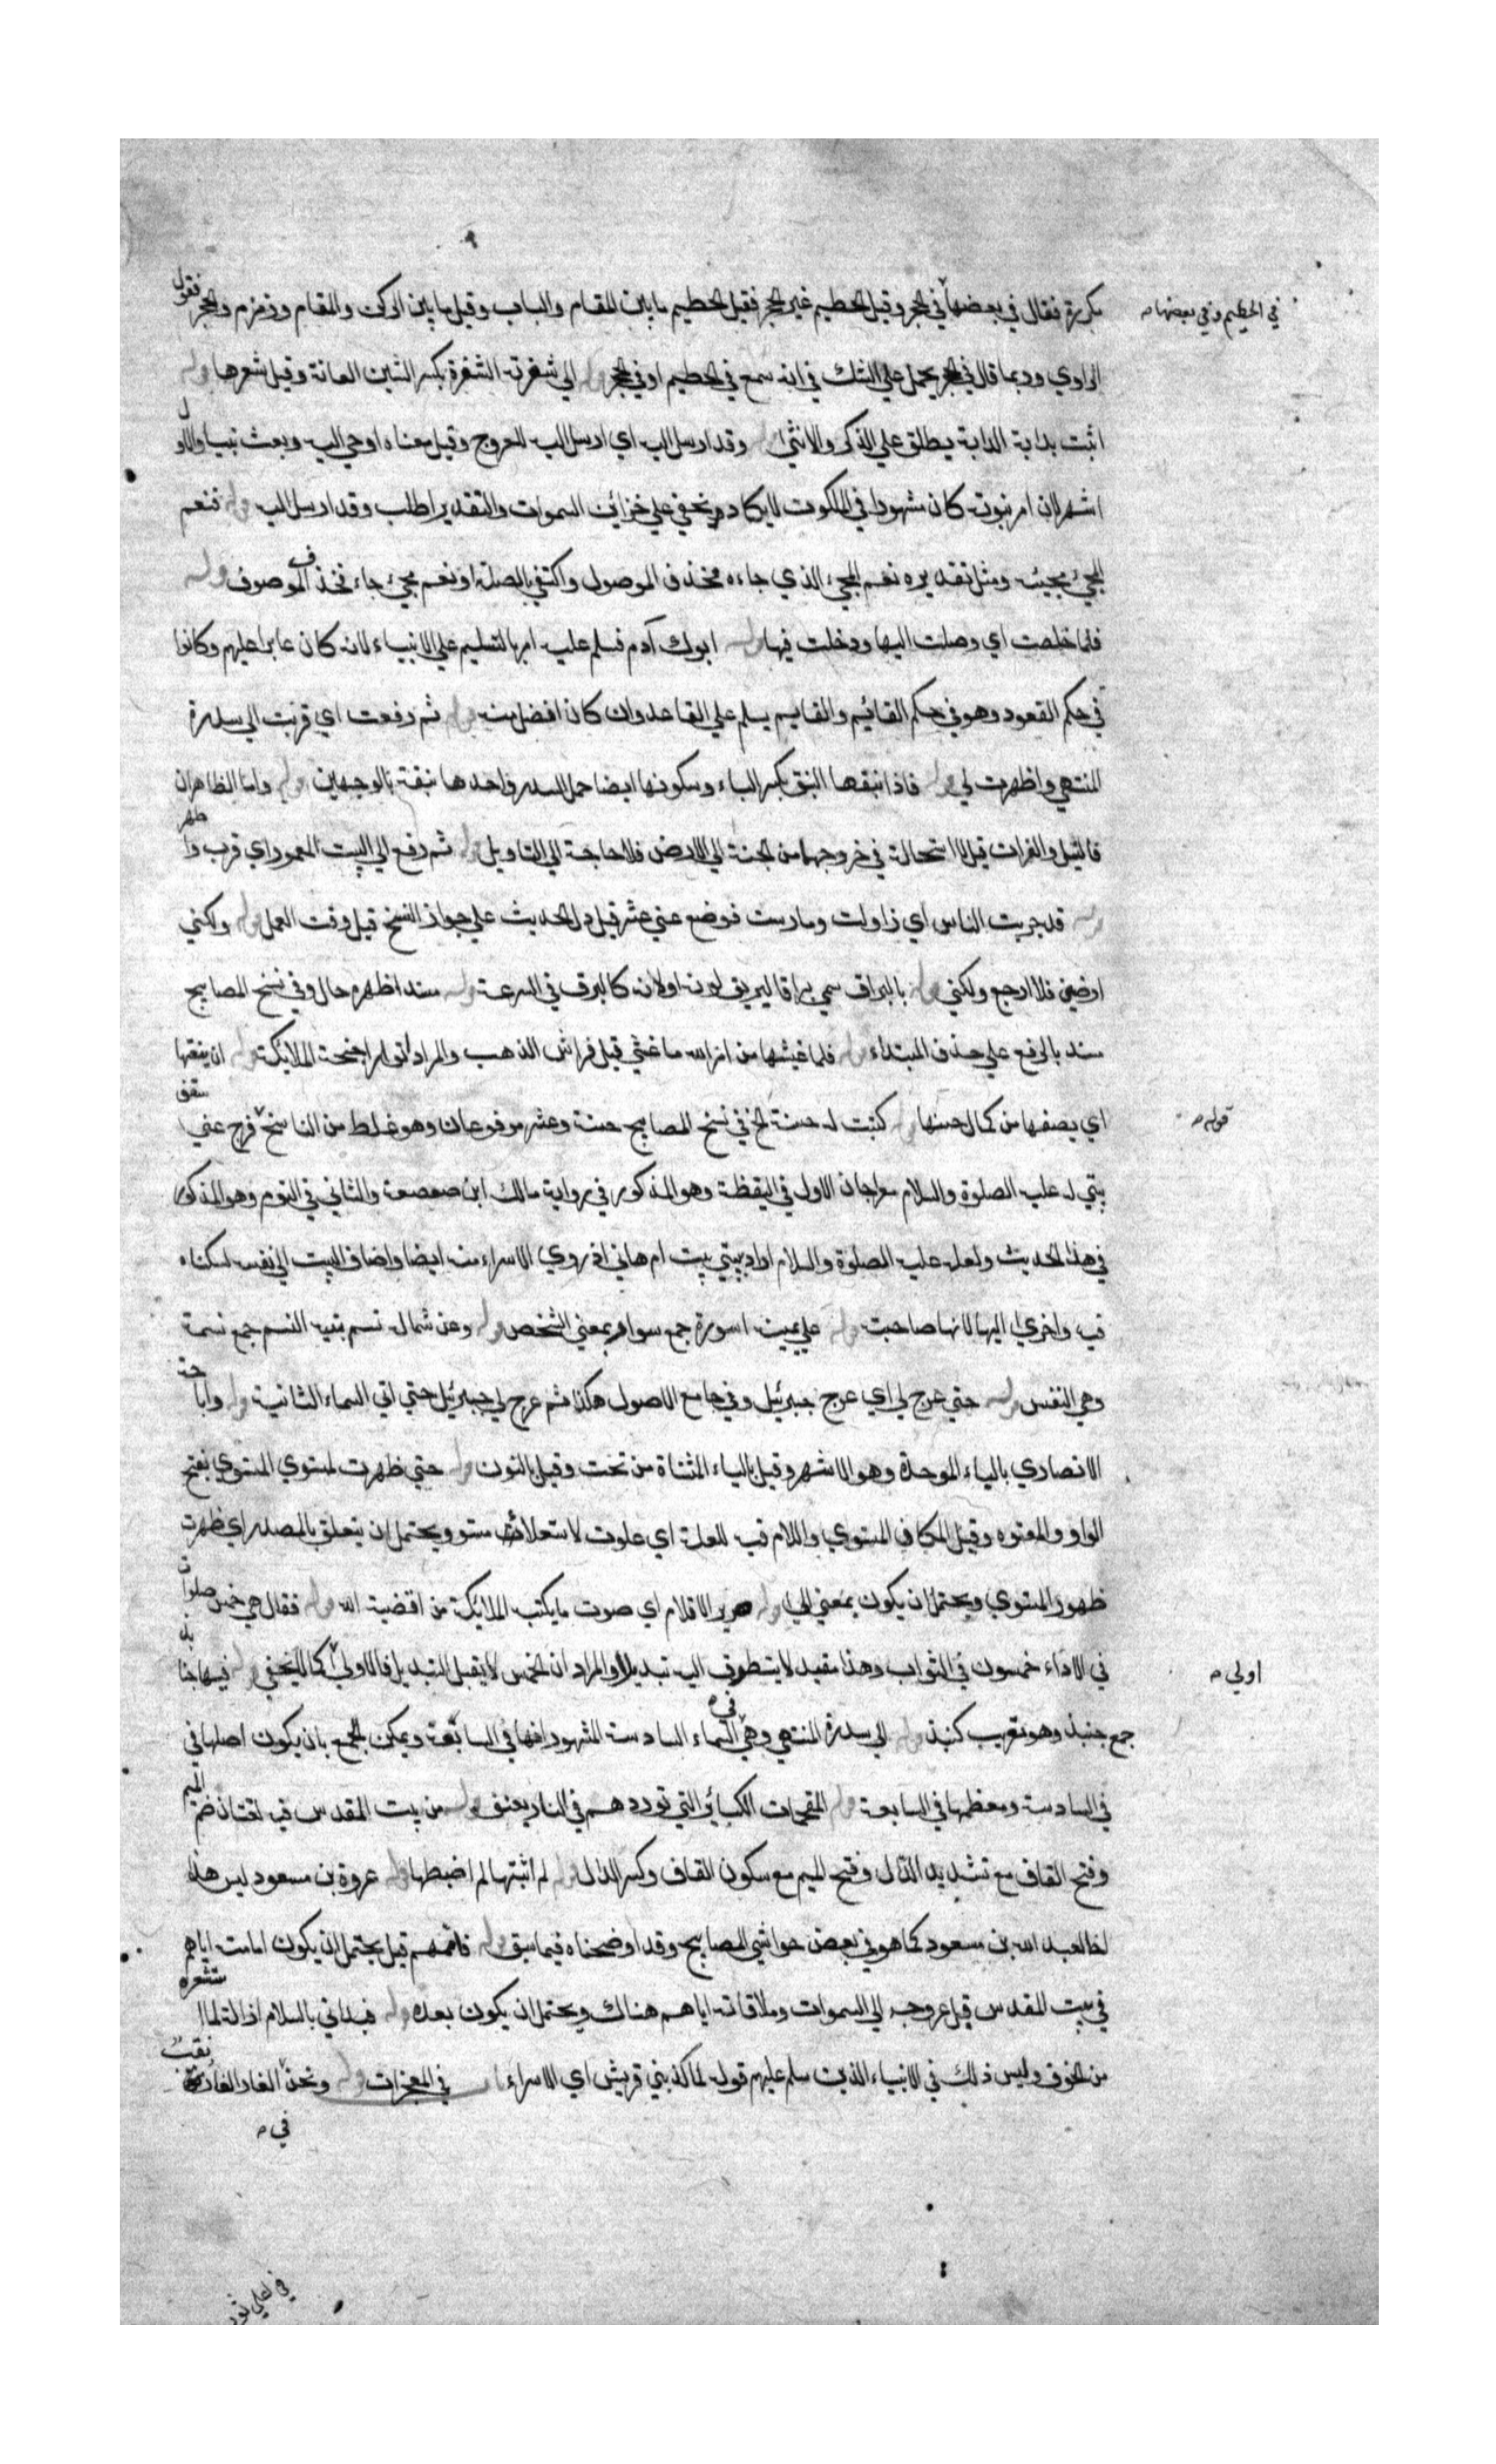 بكرة فقال في بعضها في الحجر وقيل الحطيم غير الحجر فقيل الحطيم ما بين المقام والباب وقيل ما بين الركن والمقام وزمزم والحجر فقول
في الحطيم وفي بعضها
الراوي وربما قال في الحجر يحمل علي الشك في انه سمع في الحطيم او في الحجر وله الي شعرته الشعرة بكسر الشين العانة وقيل شعرها وله
اتيت بدابة الدابة يطلق علي الذكر والانثي وله وقد ارسل اليه اي ارسل اليه للعروج وقيل معناه اوحي اليه وبعث نبيا والاول
اشهر لان امر نبوته كان مشهورا في الملكوت لا يكاد يخفي علي خزائن السموات والتقدير اطلب وقد ارسل اليه وله فنعم
المجيء مجيئه ومثل تقديره نعم المجيء الذي جاءه فحذف الموصول واكتفي بالصلة او نعم مجيء جاء فحذف الموصوف وله
فلما خلصت اي وصلت اليها ودخلت فيها وله ابوك آدم فسلم عليه امر بالتسليم علي الانبياء لانه كان عابرا عليهم وكانوا
في حكم القعود وهو في حكم القائيم والقايم يسلم علي القاعد وان كان افضل منه وله ثم رفعت اي قربت الي سدرة
المنتهي واظهرت لي وله فاذا نبقها النبق بكسر الباء وسكونها ايضا حمل السدر واحدها نبقة بالوجهين وله واما الظاهران
فالنيل والفرات قيل لا استحالة في خروجهما من الجنة الي الارض فلا حاجة الي التاويل وله ثم رفع الي البيت المعمور اي قرب واظهر
وله قد جربت الناس اي زاولت ومارست فوضع عني عشر قيل دل الحديث علي جواز النسخ قبل وقت العمل وله ولكني
ارضي فلا ارجع ولكني وله بالبراق سمي براقا لبريق لونه او لانه كالبرق في السرعة وله مسندا ظهره حال وفي نسخ المصابيح
مسند بالرفع علي حذف المبتداء وله فلما غشيها من امر الله ما غشي قيل فراش الذهب والمراد انوار اجنحة الملائكة وله ان ينعتها
اي يصفها من كمال حسنها وله كتبت له حسنة الخ في نسخ المصابيح حسنة وعشر مرفوعان وهو غلط من الناسخ فرج عني سقف
قوله
بيتي له عليه الصلوة والسلام معراجان الاول في اليقظة وهو المذكور في رواية مالك ابن صعصعة والثاني في النوم وهو المذكور
في هذا الحديث ولعله عليه الصلوة والسلام اراد ببيتي بيت ام هاني اذ روي الاسراء منه ايضا واضاف البيت الي نفسه لسكناه
فيه واخري اليها لانها صاحبته وله علي يمينه اسورة جمع سواد بمعني الشخص وله وعن شماله نسم بنيه النسم جمع نسمة
وهي النفس وله حتي عرج لي اي عرج جبرئيل وفي جامع الاصول هكذا ثم عرج لي جبرئيل حتي اتي السماء الثانية وله وابا حبة
الانصاري بالباء الموحدة وهو الاشهر وقيل بالياء المثناة من تحت وقيل بالنون وله حتي ظهرت لمستوي المستوي بفتح
الواو والمعتوه وقيل المكان المستوي واللام فيه للعلة اي علوت لاستعلاء مستو ويحتمل ان يتعلق بالمصدر اي ظهرت
ظهور المستوي ويحتمل ان يكون بمعني الي وله صرير الاقلام اي صوت ما يكتب الملائكة من اقضية الله وله فقال هي خمس صلوات
في الاداء خمسون في الثواب وهذا مقيد لا يتطرق اليه تبديل او المراد ان الخمس لا يقبل التبديل فالاول كما لا يخفي وله فيها جنابذ
اولي
جمع جنبذ وهو تعريب كنبذ وله الي سدرة المنتهي وهي في السماء السادسة المشهور انها في السابعة ويمكن الجمع بان يكون اصلها في
في السادسة ومعظمها في السابعة وله المقحمات الكبائر التي توردهم في النار بعنف وله من بيت المقدس فيه لغتان ضم الميم
وفتح القاف مع تشديد الدال وفتح الميم مع سكون القاف وكسر الدال وله لم اثبتها لم اضبطها وله عروة بن مسعود ليس هذا
اخا لعبد الله بن مسعود كما هو في بعض حواشي المصابيح وقد اوضحناه فيما سبق وله فاممتهم قيل يحتمل ان يكون امامته اياهم
في بيت المقدس قبل عروجه الي السموات وملاقاته اياهم هناك ويحتمل ان يكون بعده وله فبداني بالسلام ازالة لما استشعره
من الخوف وليس ذلك في الانبياء الذين سلم عليهم قوله لما كذبني قريش اي الاسراء في المعجزات وله ونحن في الغار الغار نقب
في